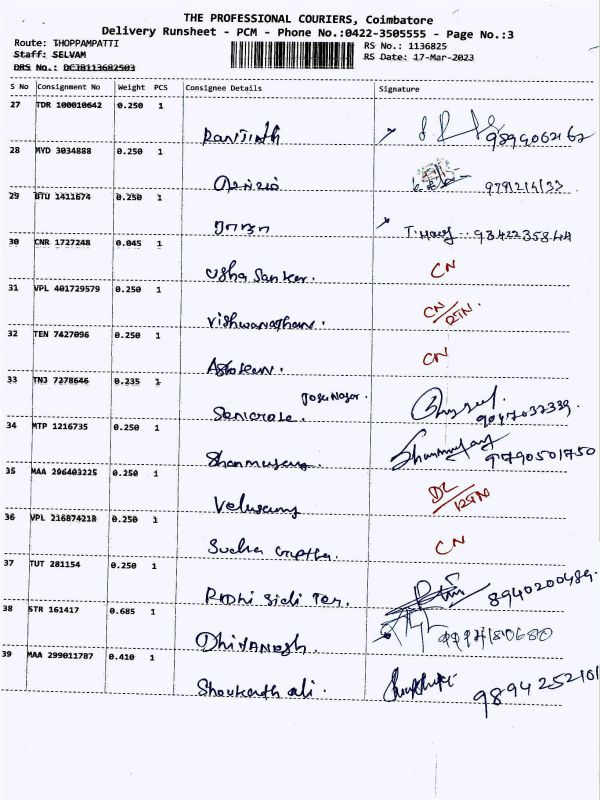 THE PROFESSIONAL COURIERS, Coimbatore
Delivery Runsheet - PCM - Phone No.:0422-3505555 - Page No.:3
Route: THOPPAMPATTI RS No.: 1136825
Staff: SELVAM RS Date: 17-Mar-2023
DRS No.: DCJB113682503
S No Consignment No Weight PCS Consignee Details Signature
27 TDR 100010642 0.250 1
Ranjith 9894062162
28 MYD 3034888 0.250 1
9791214133
29 BTU 1411674 0.250 1
ராஜா 9342235844
30 CNR 1727248 0.045 1
Usha Sankar. CN
31 VPL 401729579 0.250 1
Vishwanathan. CN/RTN.
32 TEN 7427096 0.250 1
Asokan. CN
33 TNJ 7278646 0.235 1
Jose Nagar.
9047032339.
34 MTP 1216735 0.250 1
Shanmugam. 9790501750
35 MAA 296403225 0.250 1
Velusamy DL/RTN
36 VPL 216874218 0.250 1
Sudha Guptha. CN
37 TUT 281154 0.250 1
Ridhi Sidi Tex. 8940200489.
38 STR 161417 0.685 1
Dhivanesh.
39 MAA 299011787 0.410 1
Shoukath ali. 9894252101